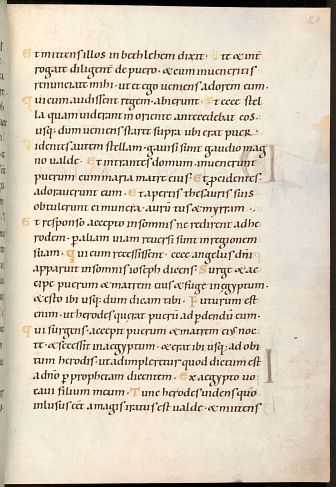 24
Et mittens illos in bethlehem dixit. Ite & int
rogate diligent de puero. & cum inueneritis
renuntiate mihi. ut et ego ueniens adorem eum.
Qui cum audissent regem. abierunt. Et ecce stel
la quam uiderant in oriente antecedebat eos.
usq; dum ueniens staret supra ubi erat puer.
Videntes autem stellam. gauisi sunt gaudio mag
no ualde. Et intrantes domum. inuenerunt
puerum cum maria matre eius. Et pcidentes
adorauerunt eum. Et apertis thesauris suis
obtulerunt ei munera. aurū tus & myrram.
Et responso accepto in somnis ne redirent ad he
rodem. p aliam uiam reuersi sunt in regionem
suam. Qui cum recessissent. ecce angelus dñi
apparuit in somnis ioseph dicens. Surge & ac
cipe puerum & matrem eius & fuge in egyptum.
& esto ibi usq; dum dicam tibi. Futurum est
enim. ut herodes querat puerū ad pdendū eum.
Qui surgens. accepit puerum & matrem eius noc
te. & secessit in aegyptum. & erat ibi usq; ad obi
tum herodis. ut adimpleretur quod dictum est
a dño p prophetam dicentem. Ex aegypto uo
caui filium meum. Tunc herodes uidens quo
inlusus est a magis iratus est ualde. & mittens